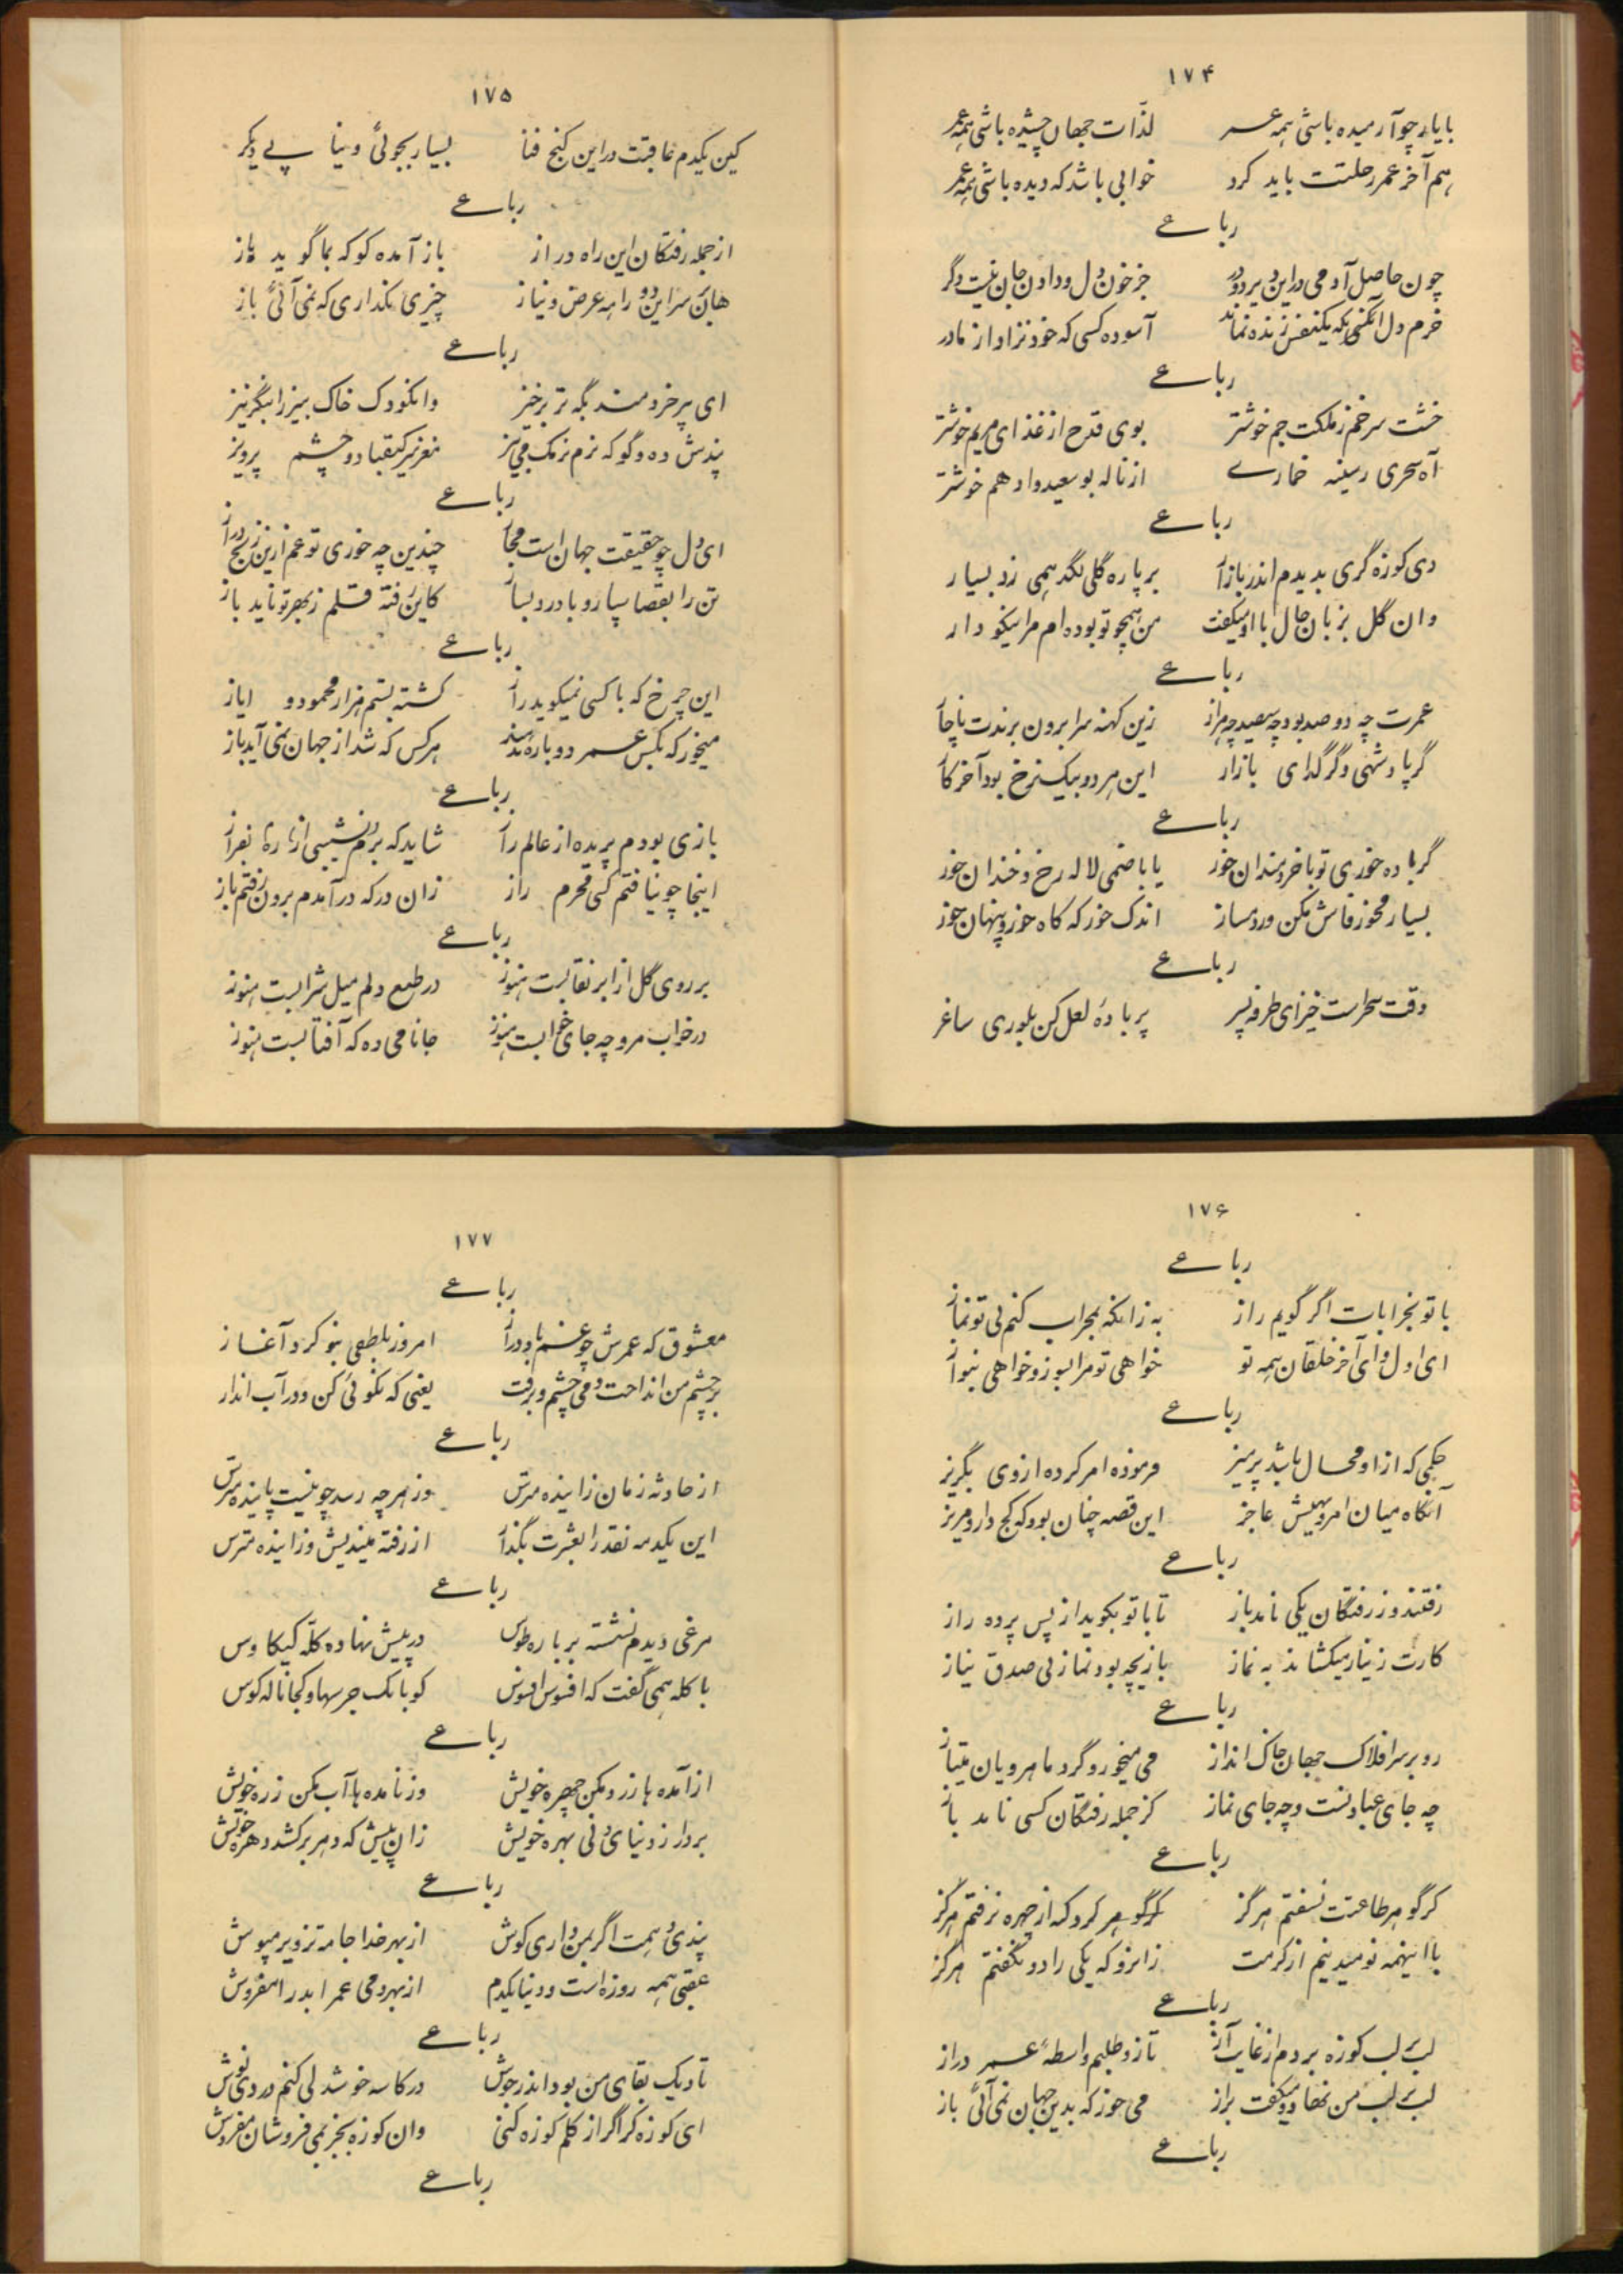 ۱۷۴
با یار چو آرمیده باشی همه عمر لذّات جهان چشیده باشی همه عمر
هم آخر عمر رحلتت باید کرد خوابی باشد که دیده باشی همه عمر
رباعی
چون حاصل آدمی در این دیر دو در جز خون دل و دادن جان نیست دگر
خرم دل آنکسی که یکنفس زنده نماند آسوده کسی که خود نزاد از مادر
رباعی
خشت سر خم ز ملکت جم خوشتر بوی قدح از غذای مریم خوشتر
آه سحری ز سینه خماری از ناله بوسعید و ادهم خوشتر
رباعی
دی کوزه گری بدیدم اندر بازار بر پاره گلی لگد همی زد بسیار
وان گل بزبان حال با او میگفت من همچو تو بوده ام مرا نیکو دار
رباعی
عمرت چه دو صد بود چه سیصد چه هزار زین کهنه سرا برون برندت ناچار
گر پادشهی و گر گدای بازار این هر دو بیک نرخ بود آخر کار
رباعی
گر باده خوری تو با خردمندان خور یا با صنمی لاله رخ و خندان خور
بسیار مخور فاش مکن ورد مساز اندک خور و گه گاه خور و پنهان خور
رباعی
وقت سحر است خیز ای طرفه پسر پر باده لعل کن بلوری ساغر
۱۷۵
کین یکدم عاقبت در این کنج فنا بسیار بجوئی و نیابی دیگر
رباعی
از جمله رفتگان این راه دراز باز آمده کو که بما گوید راز
هان بر سر این دو راهه عرض و نیاز چیزی نگذاری که نمی آئی باز
رباعی
ای پیر خردمند بگه تر برخیز وان کودک خاک بیز را بنگر تیز
پندش ده و گو که نرم نرمک می بیز مغز سر کیقباد و چشم پرویز
رباعی
ای دل چو حقیقت جهان است مجاز چندین چه خوری تو غم ازین رنج دراز
تن را بقضا سپار و با درد بساز کاین رفته قلم ز بهر تو ناید باز
رباعی
این چرخ که با کسی نمیگوید راز کشته بستم هزار محمود و ایاز
میخور که بکس عمر دوباره ندهند هر کس که شد از جهان نمی آید باز
رباعی
بازی بودم پریده از عالم راز شاید که برم ز نشیبی ره بفراز
اینجا چو نیافتم کسی محرم راز زان در که در آمدم برون رفتم باز
رباعی
بر روی گل از ابر نقابست هنوز در طبع دلم میل شرابست هنوز
در خواب مرو چه جای خوابست هنوز جانا می ده که آفتابست هنوز
۱۷۶
رباعی
با تو بخرابات اگر گویم راز به زانکه بمحراب کنم بی تو نماز
ای اول و ای آخر خلقان همه تو خواهی تو مرا بسوز و خواهی بنواز
رباعی
حکمی که از او محال باشد پرهیز فرموده امر کرده از وی بگریز
آنگاه میان امر و نهیش عاجز این قصه چنان بود که کج دار و مریز
رباعی
رفتند و ز رفتگان یکی نامد باز تا با تو بگوید از پس پرده راز
کارت ز نیاز میگشاید نه نماز بازیچه بود نماز بی صدق نیاز
رباعی
رو بر سر افلاک جهان خاک انداز می میخور و گرد ماهرویان میتاز
چه جای عبادتست و چه جای نماز کز جمله رفتگان کسی نامد باز
رباعی
گر گوهر طاعتت نسفتم هرگز گر گوهر گرد گنه از چهره نرفتم هرگز
با اینهمه نومید نیم از کرمت زانرو که یکی را دو نگفتم هرگز
رباعی
لب بر لب کوزه بردم از غایت آز تا زو طلبم واسطه عمر دراز
لب بر لب من نهاد و میگفت براز می خور که بدین جهان نمی آئی باز
رباعی
۱۷۷
رباعی
معشوق که عمرش چو غمم باد دراز امروز بلطفی بنو کرد آغاز
بر چشم من انداخت دمی چشم و برفت یعنی که نکوئی کن و در آب انداز
رباعی
از حادثه زمان زاینده مترس وز هر چه رسد چو نیست پاینده مترس
این یکدمه نقد را بعشرت بگذار از رفته میندیش وز آینده مترس
رباعی
مرغی دیدم نشسته بر باره طوس در پیش نهاده کله کیکاوس
با کله همی گفت که افسوس افسوس کو بانک جرسها و کجا ناله کوس
رباعی
از آمده ها زرد مکن چهره خویش وز نامده ها آب مکن زهره خویش
بردار ز دنیای دنی بهره خویش زان پیش که دهر بر کشد دهره خویش
رباعی
پندی دهمت اگر بمن داری گوش از بهر خدا جامه تزویر مپوش
عقبی همه روزه است و دنیا یکدم از بهر دمی عمر ابد را مفروش
رباعی
تا دیک بقای من بود اندر جوش در کاسه خوشدلی کنم دردی نوش
ای کوزه گر اگر از گلم کوزه کنی وان کوزه بجز بمی فروشان مفروش
رباعی